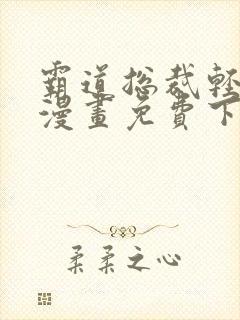 霸道总裁轻
漫畫免費下
柔柔之心